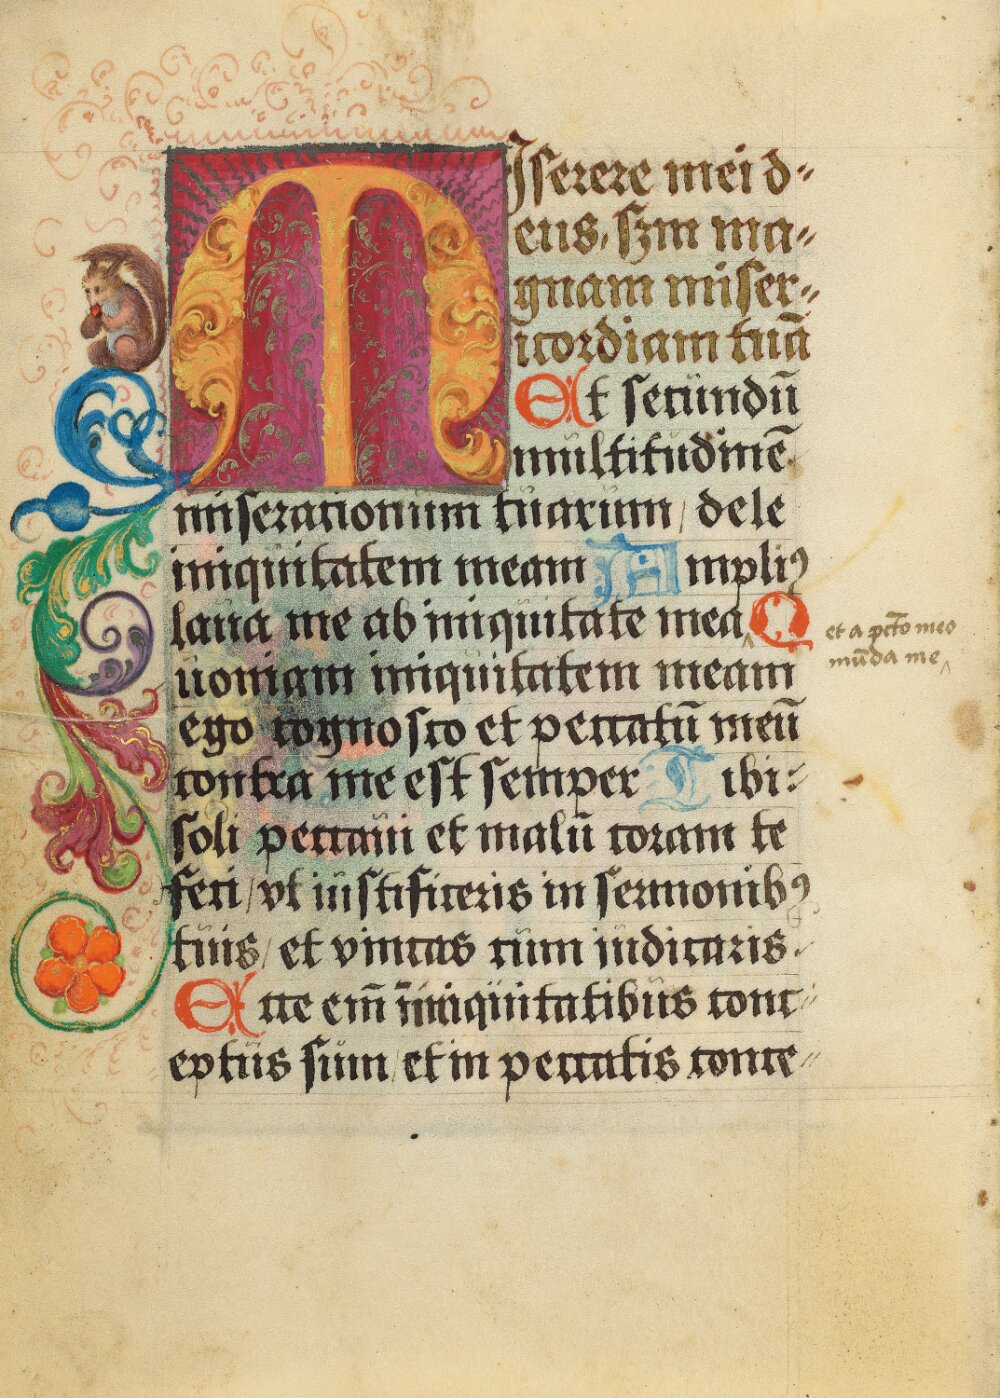 Miserere mei d⸗
eus, scḏm ma⸗
gnam miser⸗
icordiam tuā
Et secundū
multitudinē
miserationum tuarum / dele
iniquitatem meam Ampliꝰ
laua me ab iniquitate mea ‸ Q
et a pctō meo
mūda me ‸
uoniam iniquitatem meam
ego cognosco et peccatū meū
contra me est semper Tibi :
soli peccaui et malū coram te
feci / vt iustificeris in sermonibꝰ
tuis / et vincas cum iudicaris.
Ecce em̄ iniquitatibus conc⸗
eptus sum / et in peccatis conce⸗